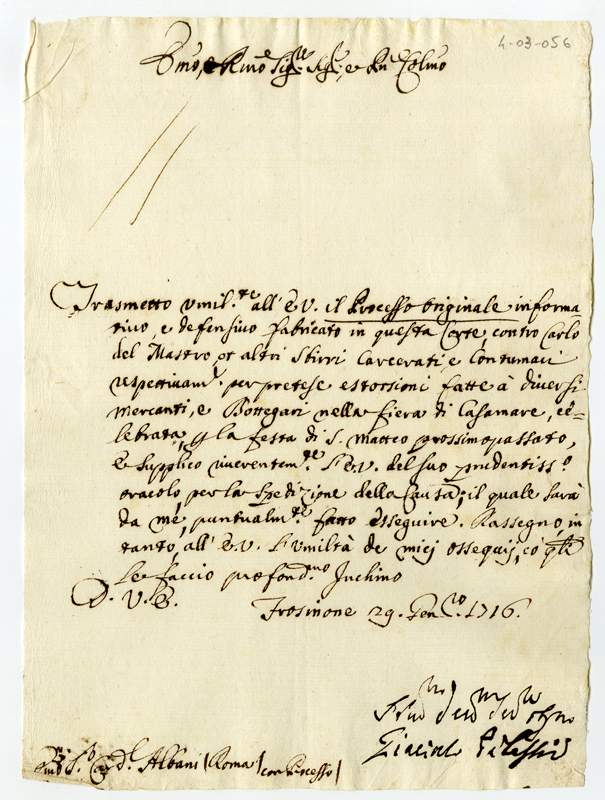 4-03-056
Emo, e Rmo Sig.re Sig.r, e Pñ Colmo
Trasmetto umil.te all' E.V. il Processo Originale informa-
tivo e defensivo fabricato in questa Corte, contro Carlo
del Mastro, et altri Sbirri Carcerati, e Contumaci
respettivam.e per pretese estorsioni fatte à diversi
Mercanti, e Bottegari nella fiera di Casamare, ce=
lebrata, p la festa di S. Matteo prossimo passato,
e supplico riverentem.te l'E.V. del suo prudentiss.o
oracolo, per la Spedizione della Causa; il quale sarà
da mè, puntualm.te fatto esseguire. Rassegno, in
tanto, all' E.V. l'umiltà de miei ossequij, cò qli
le faccio profond.mo Inchino
D. V. E.
Frosinone 29. Gen.ro 1716.
Giacinto
Albani (Roma) con Processo)